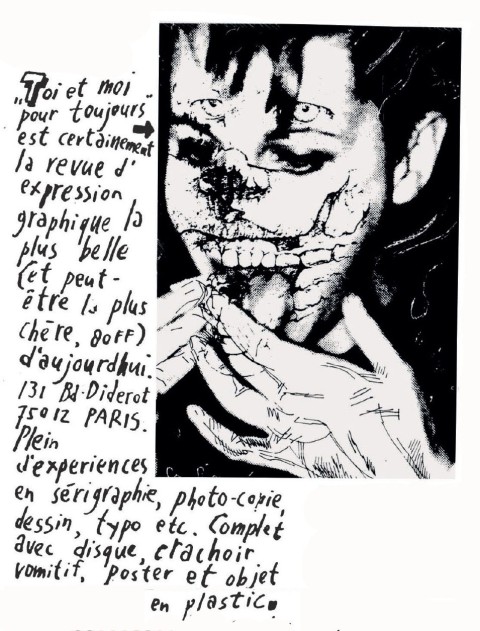 "Toi et moi
pour toujours"
est certainement
la revue d'
expression
graphique la
plus belle
(et peut-
être la plus
chère, 80FF)
d'aujourdhui.
131 Bd. Diderot
75012 PARIS.
Plein
d'experiences
en sérigraphie, photo-copie,
dessin, typo etc. Complet
avec disque, crachoir
vomitif, poster et objet
en plastic.